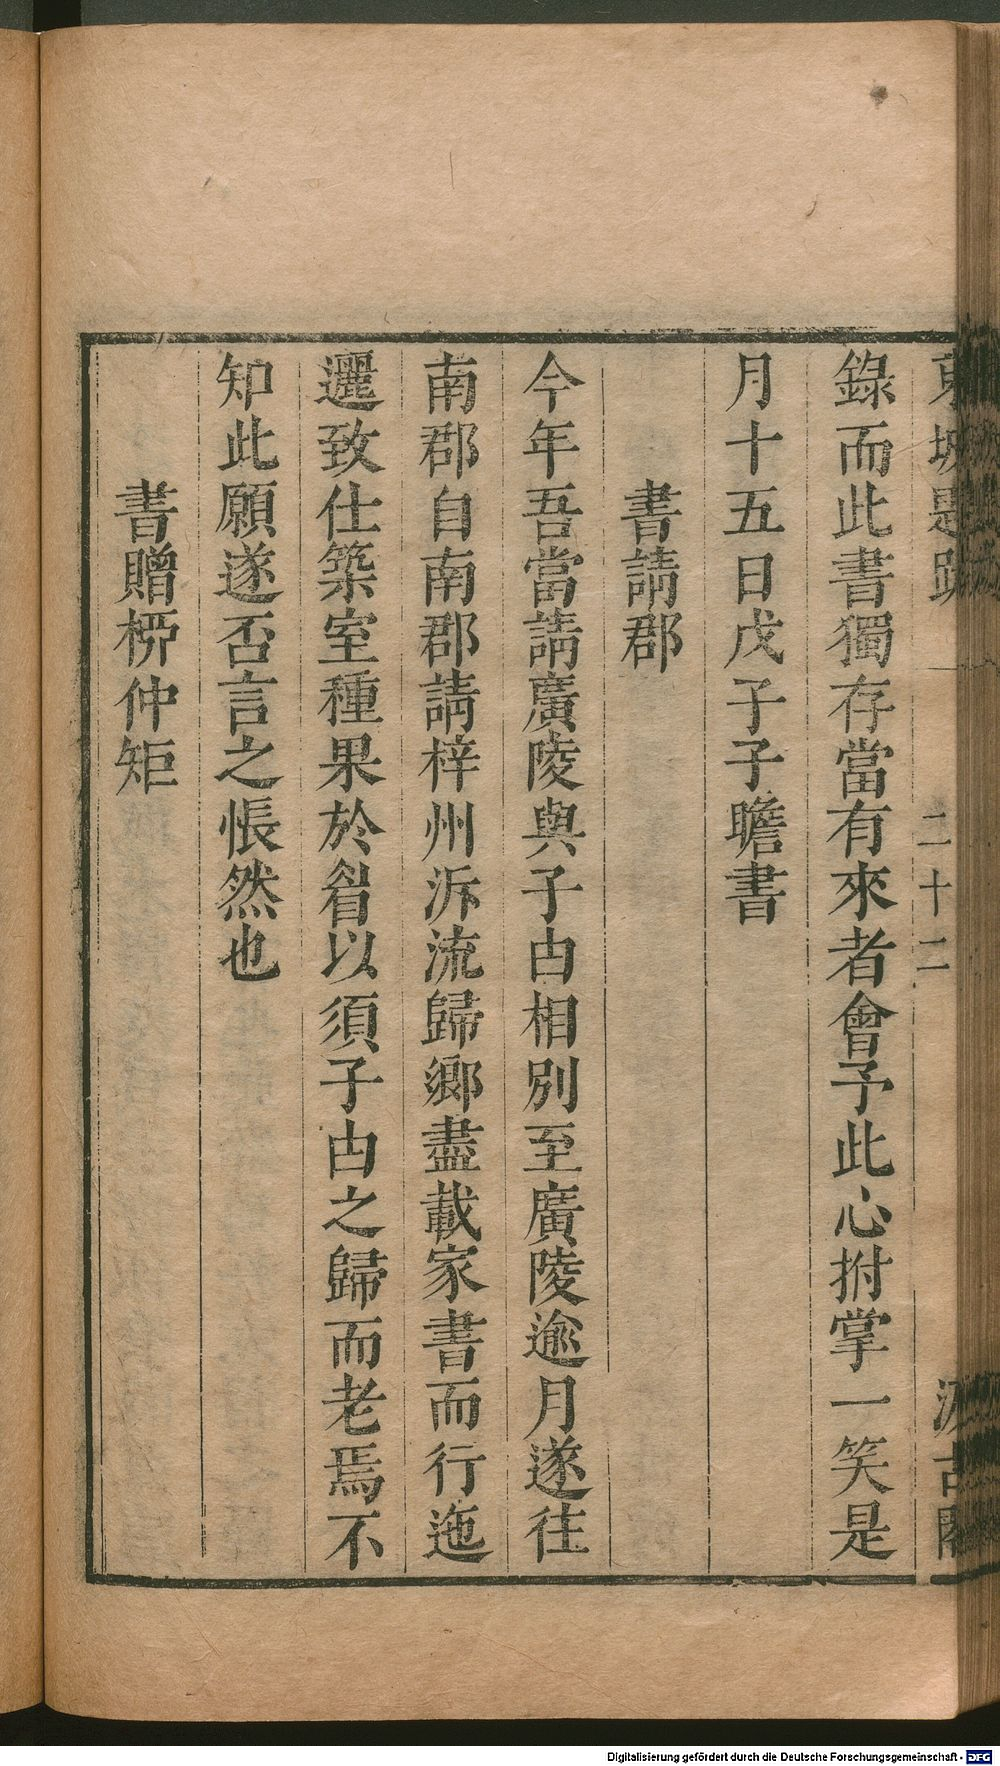 東坡題跋
二十二
汲古閣
錄而此書獨存當有來者會予此心拊掌一笑是
月十五日戊子子瞻書
書請郡
今年吾當請廣陵與子由相別至廣陵逾月遂往
南郡自南郡請梓州泝流歸鄉盡載家書而行迤
邐致仕築室種果於眉以須子由之歸而老焉不
知此願遂否言之悵然也
書贈栁仲矩
Digitalisierung gefördert durch die Deutsche Forschungsgemeinschaft - DFG